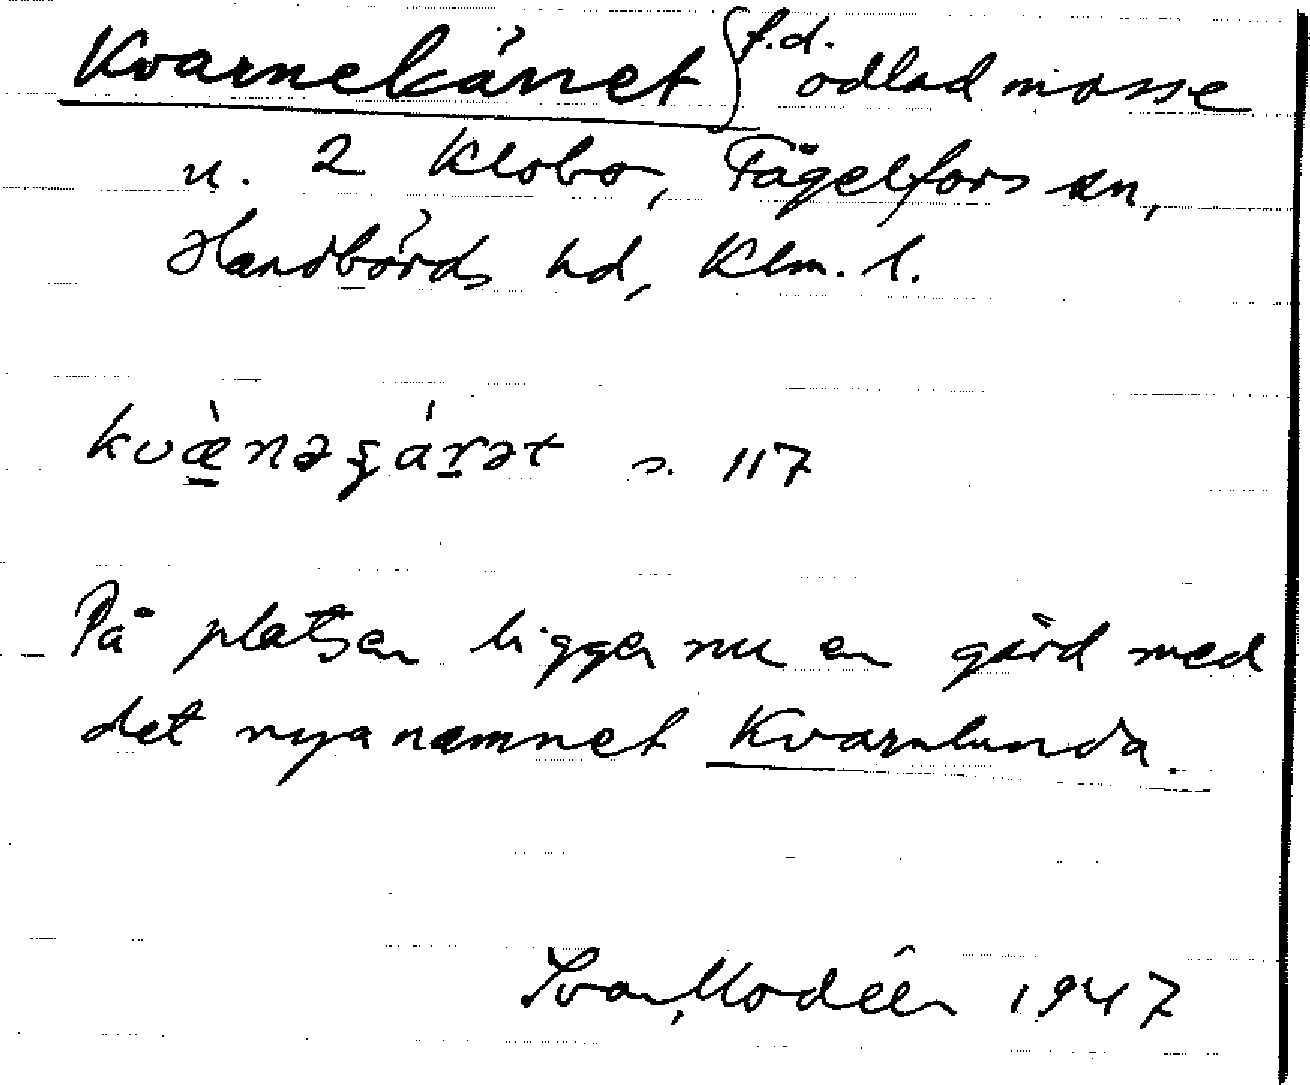 Kvarnekärret { f.d. odlad mosse
u. 2 Klobo, Fågelfors sn,
Handbörds hd, Klm. l.
kvæ̀nəʂárət s. 117
På platsen ligger nu en gård med
det nya namnet Kvarnlunda.
Ivar Modéer 1947